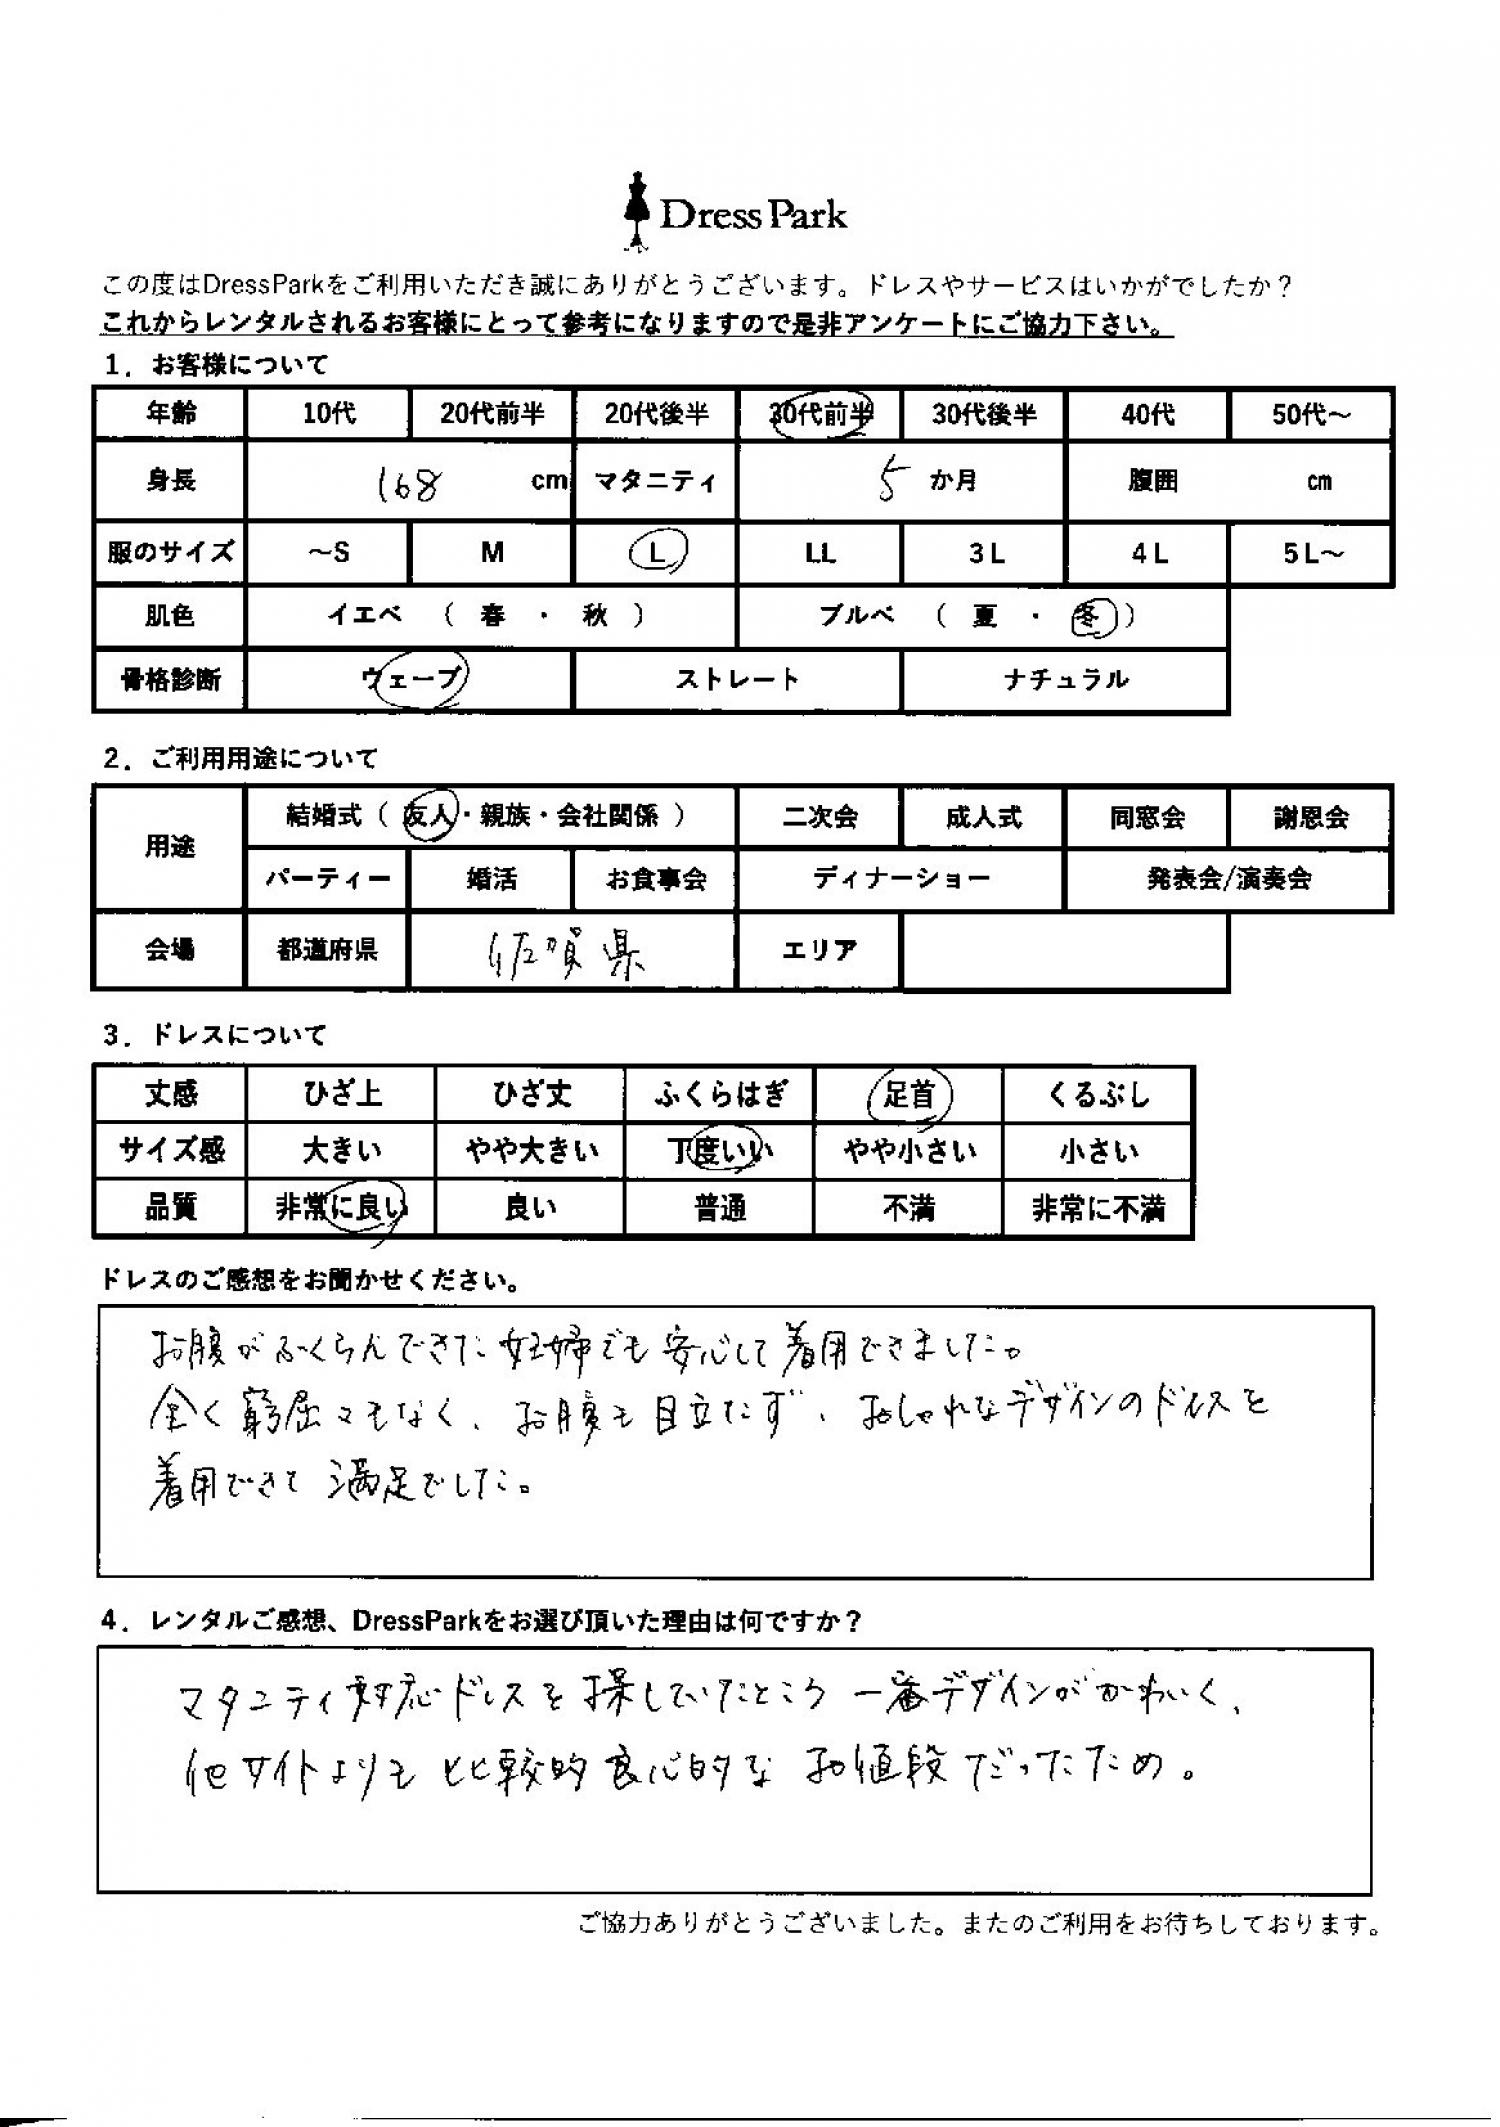 Dress Park
この度はDressParkをご利用いただき誠にありがとうございます。ドレスやサービスはいかがでしたか？
これからレンタルされるお客様にとって参考になりますので是非アンケートにご協力下さい。
1．お客様について
年齢 10代 20代前半 20代後半 30代前半 30代後半 40代 50代～
身長 168 cm マタニティ 5 か月 腹囲 cm
服のサイズ ～S M L LL 3L 4L 5L～
肌色 イエベ （ 春 ・ 秋 ） ブルベ （ 夏 ・ 冬 ）
骨格診断 ウェーブ ストレート ナチュラル
2．ご利用用途について
用途 結婚式（ 友人・親族・会社関係 ） 二次会 成人式 同窓会 謝恩会
パーティー 婚活 お食事会 ディナーショー 発表会/演奏会
会場 都道府県 佐賀県 エリア
3．ドレスについて
丈感 ひざ上 ひざ丈 ふくらはぎ 足首 くるぶし
サイズ感 大きい やや大きい 丁度いい やや小さい 小さい
品質 非常に良い 良い 普通 不満 非常に不満
ドレスのご感想をお聞かせください。
お腹がふくらんできた妊婦でも安心して着用できました。
全く窮屈さもなく、お腹も目立たず、おしゃれなデザインのドレスを
着用できて満足でした。
4．レンタルご感想、DressParkをお選び頂いた理由は何ですか？
マタニティ対応ドレスを探していたところ一番デザインがかわいく、
他サイトよりも比較的良心的なお値段だったため。
ご協力ありがとうございました。またのご利用をお待ちしております。